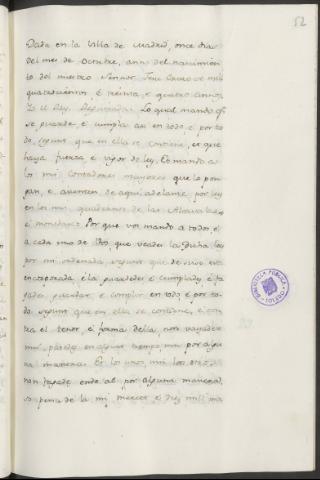 52
Dada en la Villa de Madrid, once dias
del mes de Octubre, anno del nacimien-
to del nuestro Sennor Jesu Christo de mil
quatrocientos é treinta, e quatro annos
Yo el Rey. Registrada. Lo qual mando q̃
se guarde, e cumpla asi en todo, e por to
do, segunt que en ella se contiene, et que
haya fuerza e vigor de ley. Et mando a
los mis Contadores mayores que lo pon
gan, e asienten de aqui adelante por ley
en los mis quadernos de las Alcavalas
é monedas. Por que vos mando a todos, e
a cada uno de Vos, que veades la dicha ley
por mi ordenada, segunt que de suso va
encorporada é la guardedes é cumplades, é fa
gades guardar, e complir en todo, e por to
do segunt que en ella se contiene, é con
tra el tenor, é forma della, non vayades
nin pasedes en algunt tiempo, nin por algu
na manera. Et los unos, nin los otros,
non fagades ende al por alguna manera,
so pena de la mi merced é diez mill ma
BIBLIOTECA PUBLICA
TOLEDO